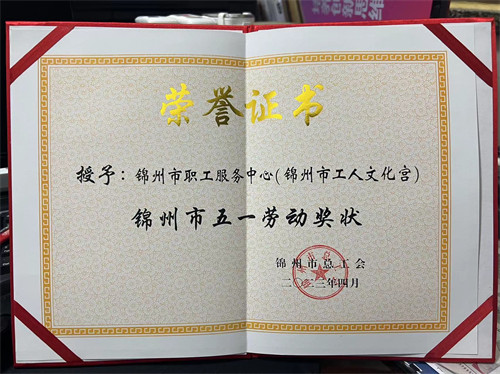 荣誉证书
授予：锦州市职工服务中心(锦州市工人文化宫)
锦州市五一劳动奖状
锦州市总工会
二〇二三年四月